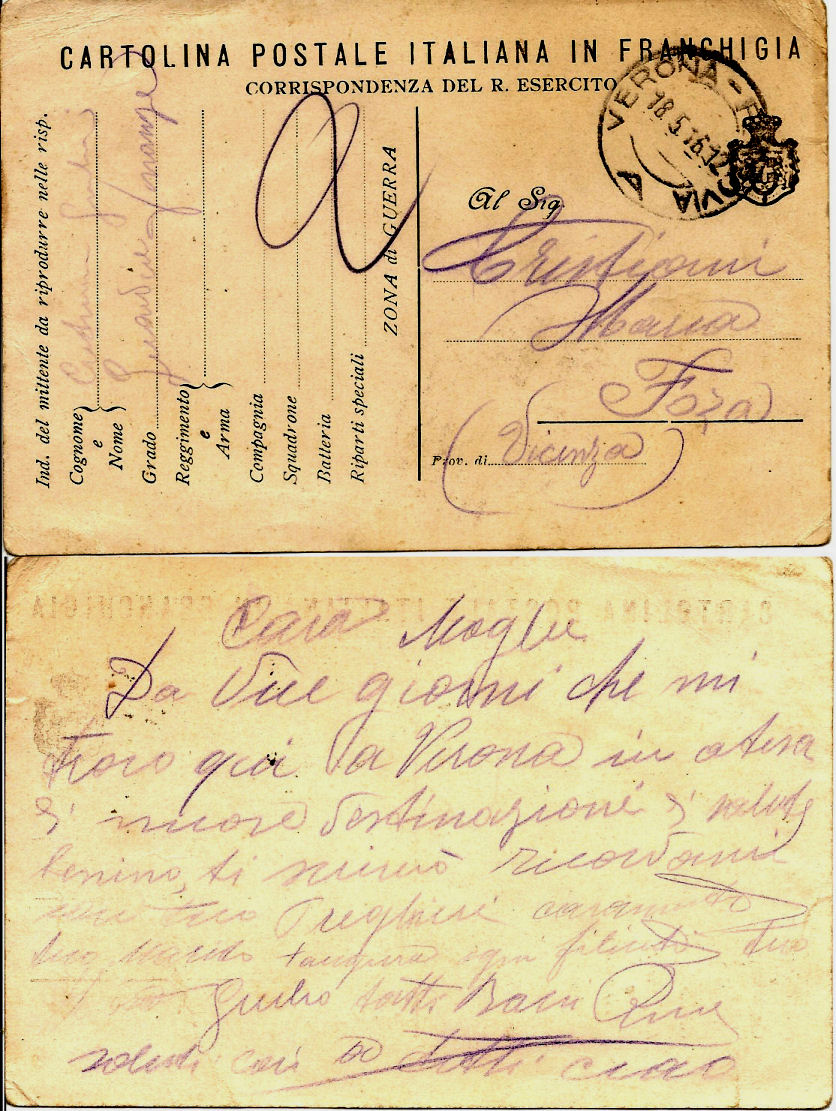 CARTOLINA POSTALE ITALIANA IN FRANCHIGIA
CORRISPONDENZA DEL R. ESERCITO
VERONA
18.5.16.12
Ind. del mittente da riprodurre nelle risp.
Cognome e Nome
Grado
Guardia Finanza
Reggimento e Arma
Compagnia
Squadrone
Batteria
Riparti speciali
ZONA di GUERRA
Al Sig
Cristiani
Maria
Foza
Prov. di Vicenza
Cara Moglie
Da due giorni che mi
trovo qui a Verona in atesa
di nuova destinazione di salute
benino, ti scriverò ricordami
Preghiere
tuo Marito ogni
Giulio tanti Baci
saluti tutti ciao